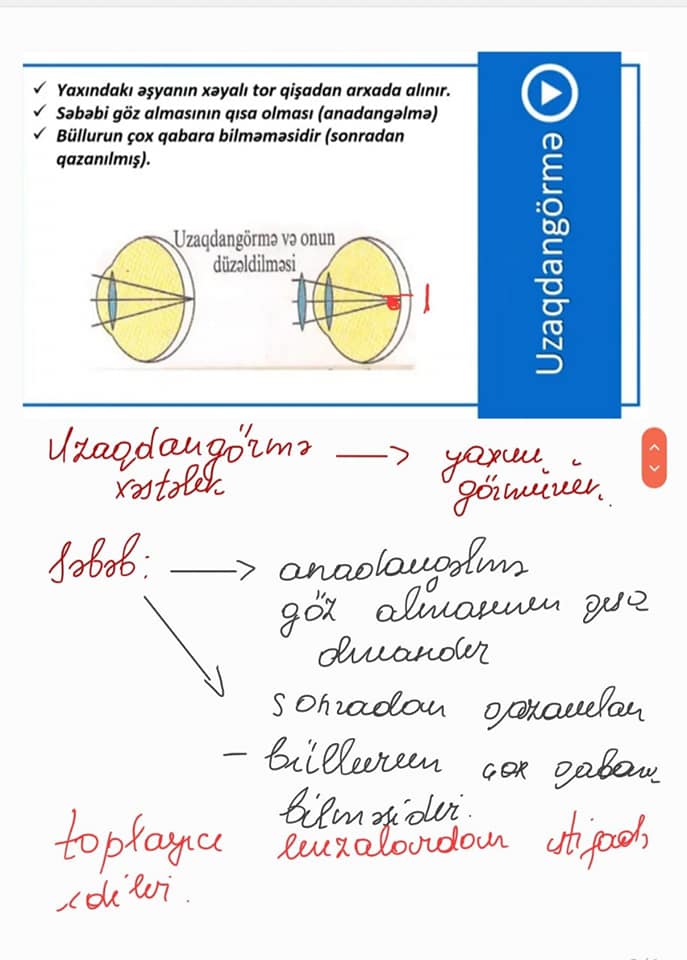 ✓ Yaxındakı əşyanın xəyalı tor qişadan arxada alınır.
✓ Səbəbi göz almasının qısa olması (anadangəlmə)
✓ Büllurun çox qabara bilməməsidir (sonradan
qazanılmış).
Uzaqdangörmə
Uzaqdangörmə və onun
düzəldilməsi
Uzaqdangörmə → yaxını
xəstələr görmürlər.
Səbəb: → anadangəlmə
göz almasının qısa
olmasıdır
sonradan qazanılan
- büllurun çox qabara
toplayıcı linzalardan istifadə
edilir.